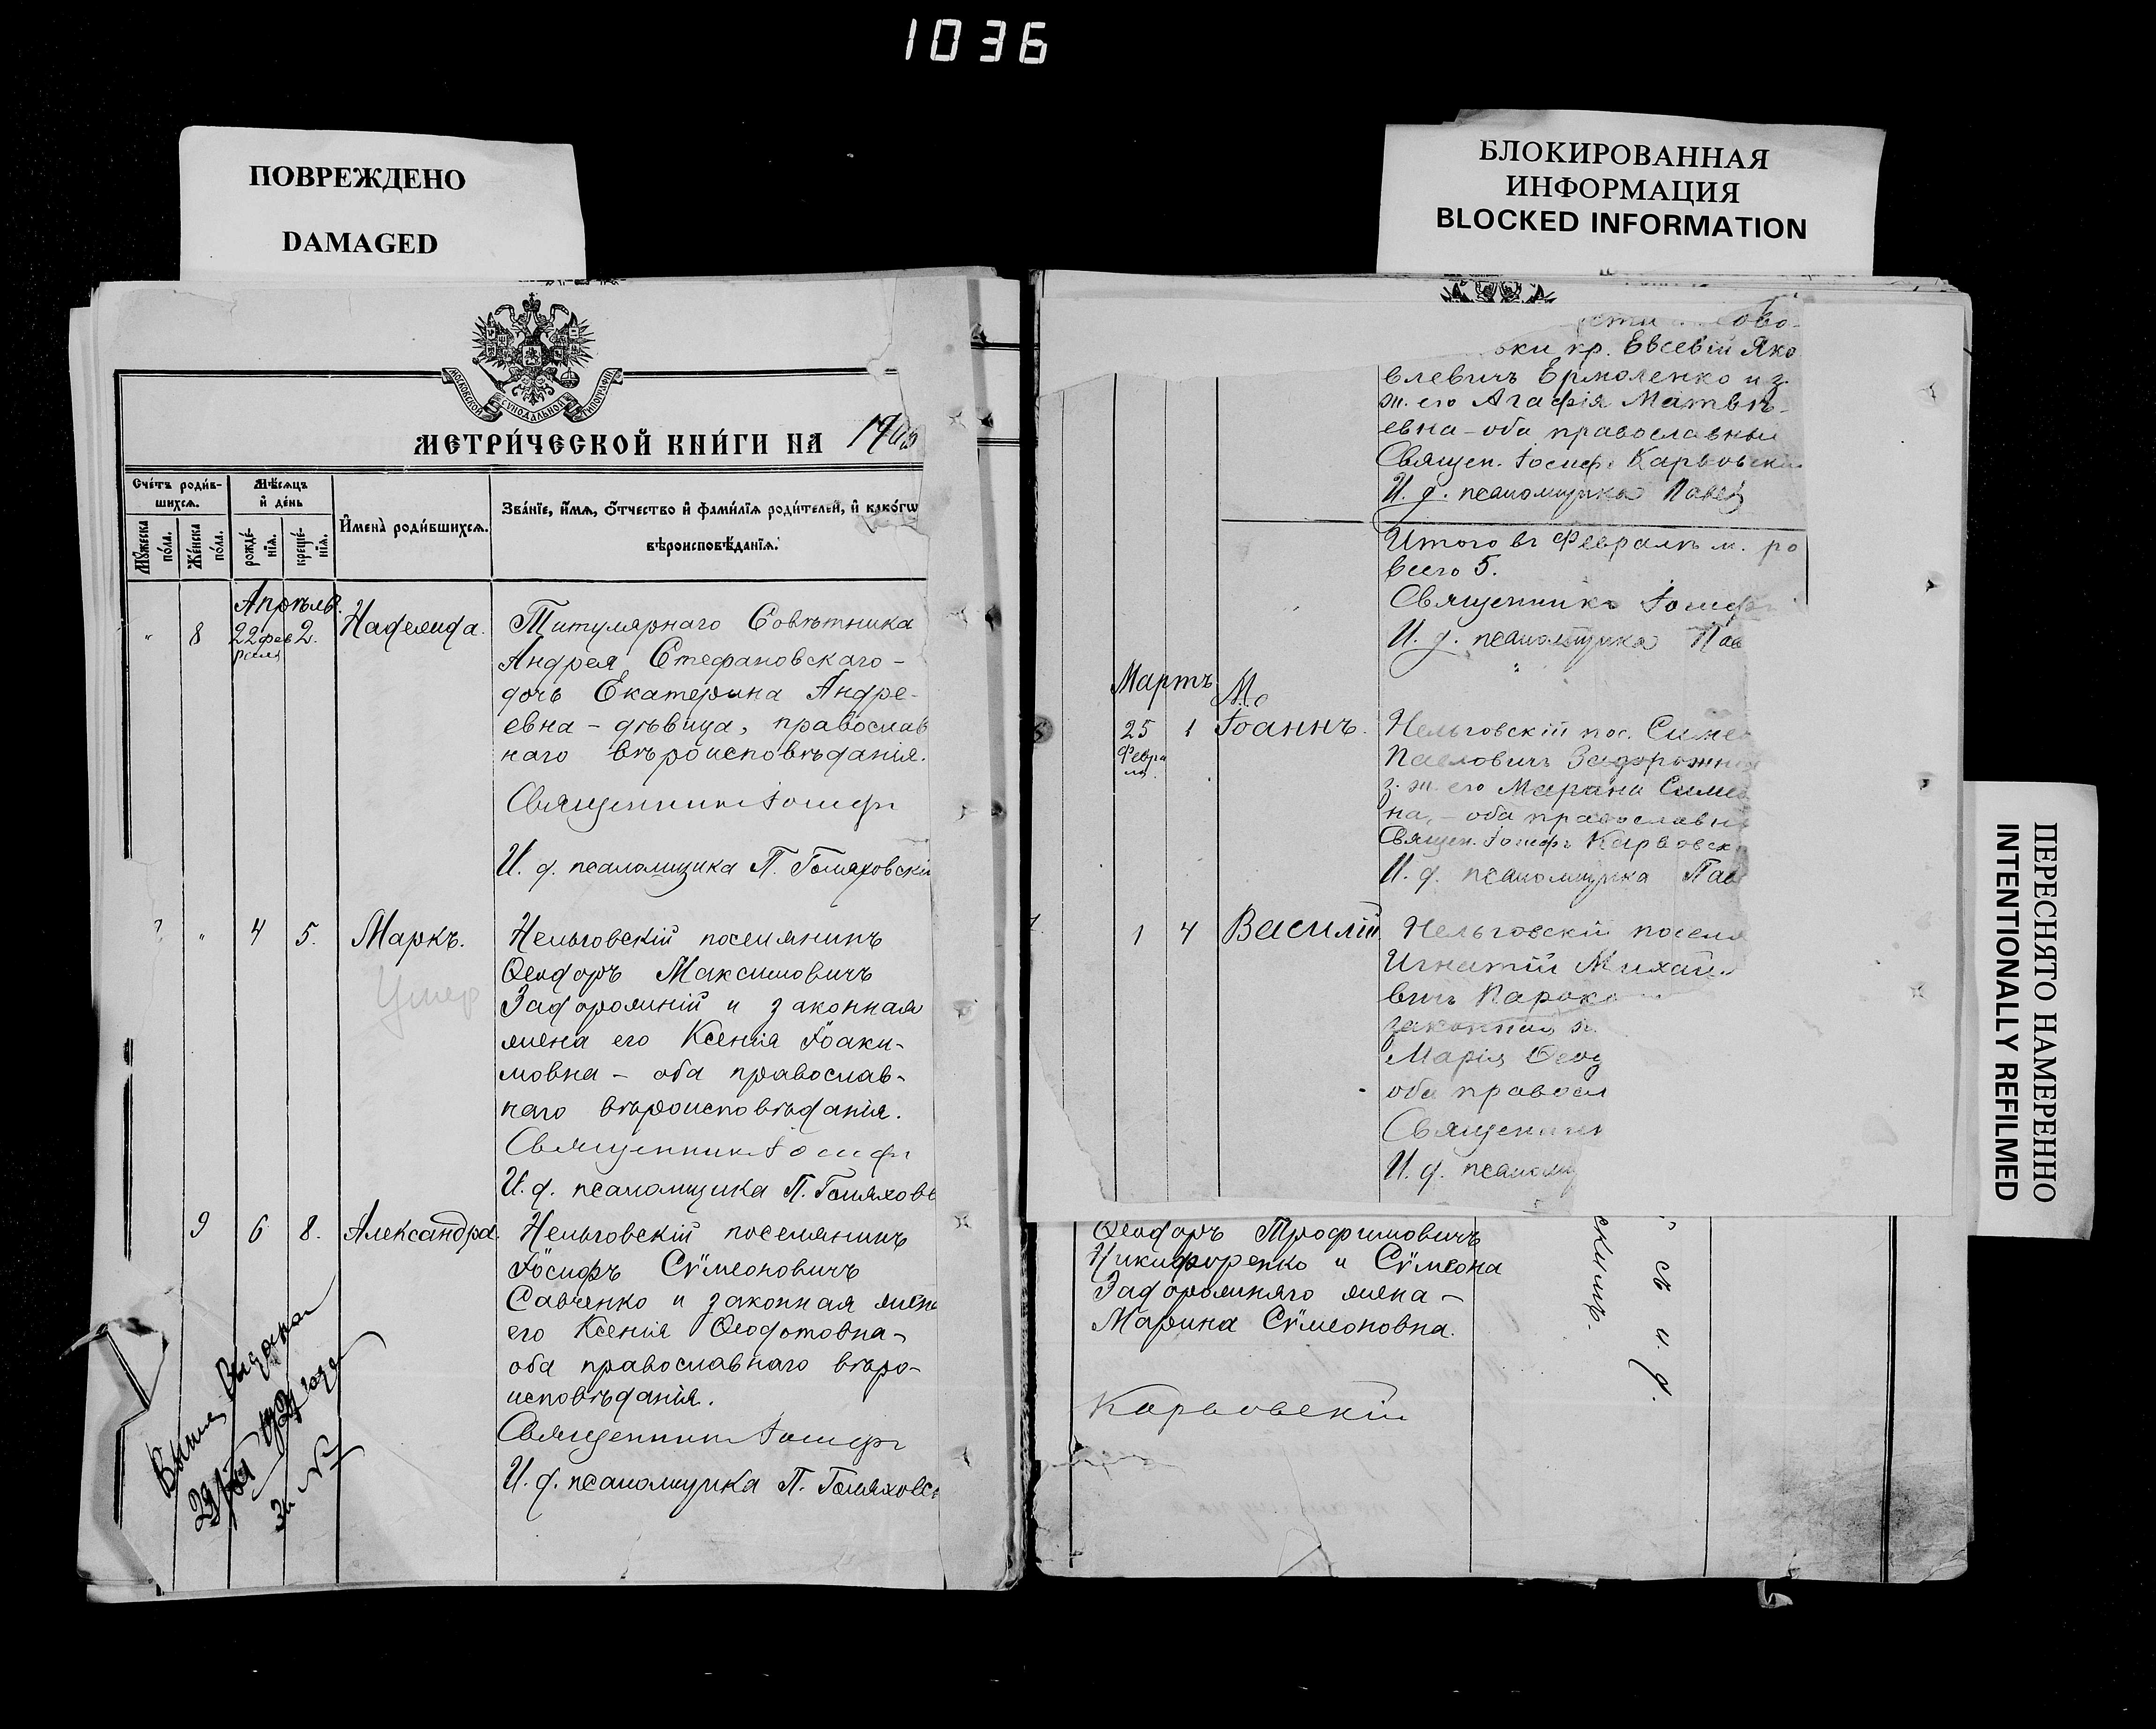 1036
ПОВРЕЖДЕНО
DAMAGED
БЛОКИРОВАННАЯ
ИНФОРМАЦИЯ
BLOCKED INFORMATION
ПЕРЕСНЯТО НАМЕРЕННО
INTENTIONALLY REFILMED
МОСКОВСКОЙ СУНОДАЛЬНОЙ ТИПОГРАФІИ
МЕТРИ́ЧЕСКОЙ КНИ́ГИ НА
Сче́тъ роди́в-
шихсѧ.
Мѣ́сѧцъ
и҆ де́нь
Мꙋ́жеска
по́ла.
Же́нска
по́ла.
рожде́-
нїѧ.
креще́-
нїѧ.
И҆мена̀ роди́вшихсѧ.
Зва́нїе, и҆́мѧ, ѻ҆́тчество и҆ фами́лїѧ роди́телей, и҆ како́гѡ
вѣроисповѣ́данїѧ.
Апрѣль.
" 8 22 фев 2. Надежда.
раля
Титулярнаго Совѣтника
Андрея Стефановскаго –
дочь Екатерина Андре-
евна – дѣвица, православ
наго вѣроисповѣданія.
Священникъ Іосифъ
И. д. псаломщика П. Голяховскі
" 4 5. Маркъ.
Умер
Нельговскій поселянинъ
Ѳеодоръ Максимовичъ
Задорожній и законная
жена его Ксенія Іоаки-
мовна – оба православ-
наго вѣроисповѣданія.
Священникъ Іосифъ
И. д. псаломщика П. Голяховс
9 6 8. Александра.
Нельговскій поселянинъ
Іосифъ Сѵмеоновичъ
Савченко и законная жена
его Ксенія Ѳеодотовна –
оба православнаго вѣро-
исповѣданія.
Священникъ Іосифъ
И. д. псаломщика П. Голяховс
года
за №
кр. Евсевій Яко
влевичъ Ермоленко и з.
ж. его Агафія Матвѣ-
евна – оба православные
Священ. Іосифъ Карвовскі
И. д. псаломщика Павел
Итого въ Февралѣ м. ро
всего 5.
Священникъ Іосифъ
И. д. псаломщика Пав
Мартъ
25 1 Іоаннъ.
Февра
ля.
Нельговскій пос. Симе
Павловичъ Задорожній
з. ж. его Марина Симео
на, – оба православн
Священ. Іосифъ Карвовск
И. д. псаломщика Пав
1 4 Василій
Нельговскій поселя
Игнатій Михай
вичъ
законная ж.
Марія Ѳеод
оба правосл
Священни
И. д. псаломщ
Ѳеодоръ Трофимовичъ
Никифоренко и Сѵмеона
Задорожняго жена –
Марина Сѵмеоновна.
Карвовскій